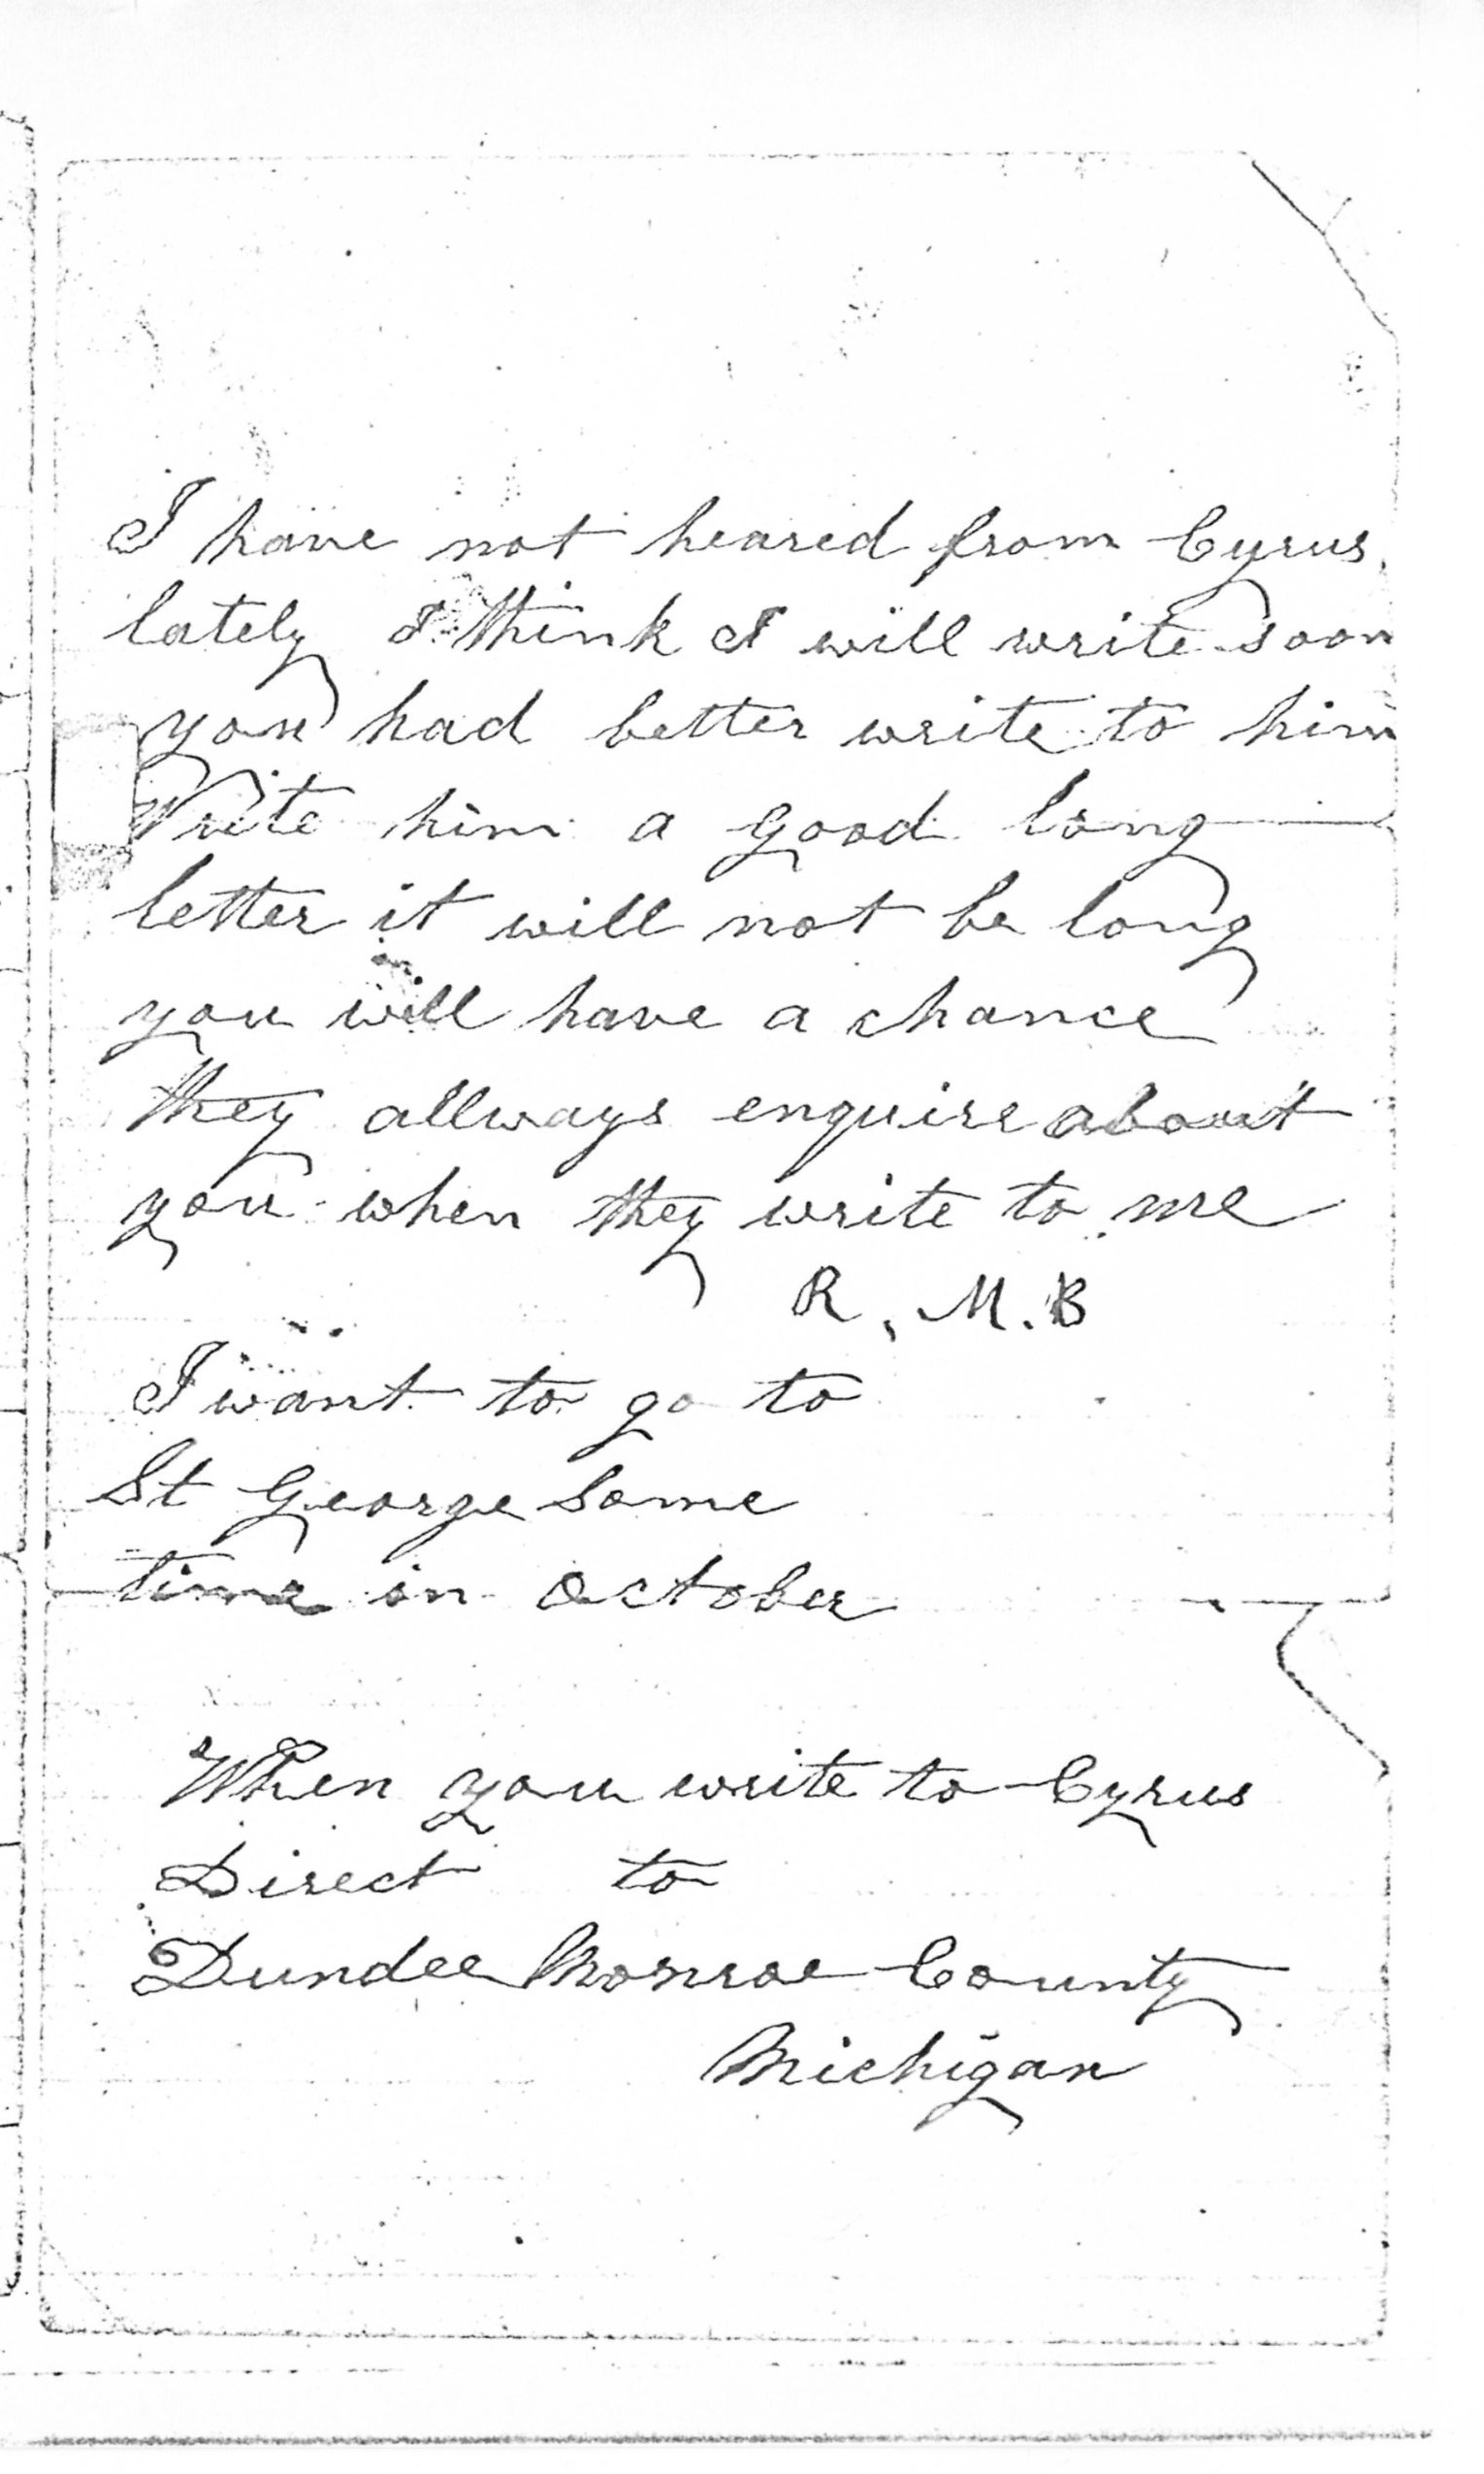 I have not heared from Cyrus
lately I think I will write soon
you had better write to him
Write him a good long
letter it will not be long
you will have a chance
they allways enquire about
you when they write to me
R. M. B
I want to go to
St George Some
time in October
When you write to Cyrus
Direct to
Dundee Monroe County
Michigan